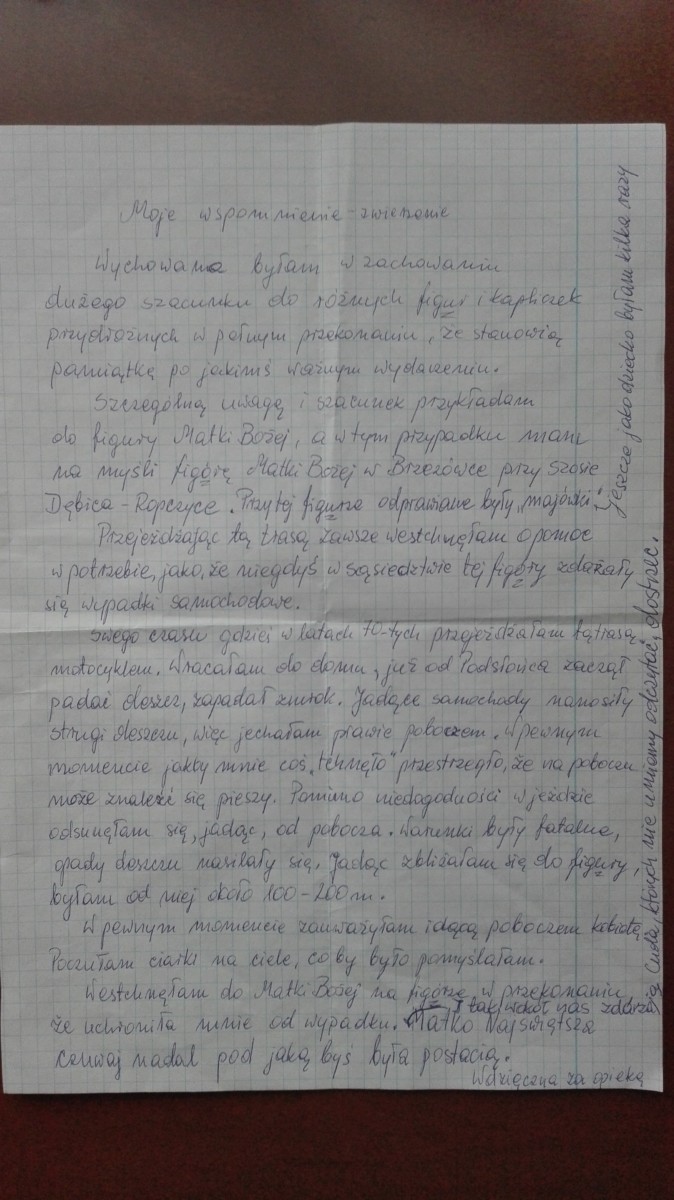 Moje wspomnienie-zwierzenie
Wychowana byłam w zachowaniu
dużego szacunku do różnych figur i kapliczek
przydrożnych w pełnym przekonaniu, że stanowią
pamiątkę po jakimś ważnym wydarzeniu.
Szczególną uwagę i szacunek przykładam
do figury Matki Bożej, a w tym przypadku mam
na myśli figórę Matki Bożej w Brzezówce przy szosie
Dębica-Ropczyce. Przy tej figurze odprawiane były "majówki".
Przejeżdżając tą trasą zawsze westchnęłam o pomoc
w potrzebie, jako, że niegdyś w sąsiedztwie tej figóry zdarzały
się wypadki samochodowe.
Swego czasu gdzieś w latach 70-tych przejeżdżałam tą trasą
motocyklem. Wracałam do domu, już od Podsłońca zaczął
padać deszcz, zapadał zmrok. Jadące samochody nanosiły
strugi deszczu, więc jechałam prawie poboczem. W pewnym
momencie jakby mnie coś "tchnęło" przestrzegło, że na poboczu
może znaleźć się pieszy. Pomimo niedogodności w jeździe
odsunęłam się, jadąc, od pobocza. Warunki były fatalne,
opady deszczu nasilały się. Jadąc zbliżałam się do figury,
byłam od niej około 100-200 m.
W pewnym momencie zauważyłam idącą poboczem kobietę.
Poczułam ciarki na ciele, co by było pomyślałam.
Westchnęłam do Matki Bożej na figórze w przekonaniu,
że uchroniła mnie od wypadku. Matko Najświętsza
czuwaj nadal pod jaką byś była postacią.
Wdzięczna za opiekę
Jeszcze jako dziecko byłam kilka razy
I tak wokół nas zdarzają się
Cuda, których nie umiemy odczytać, dostrzec.